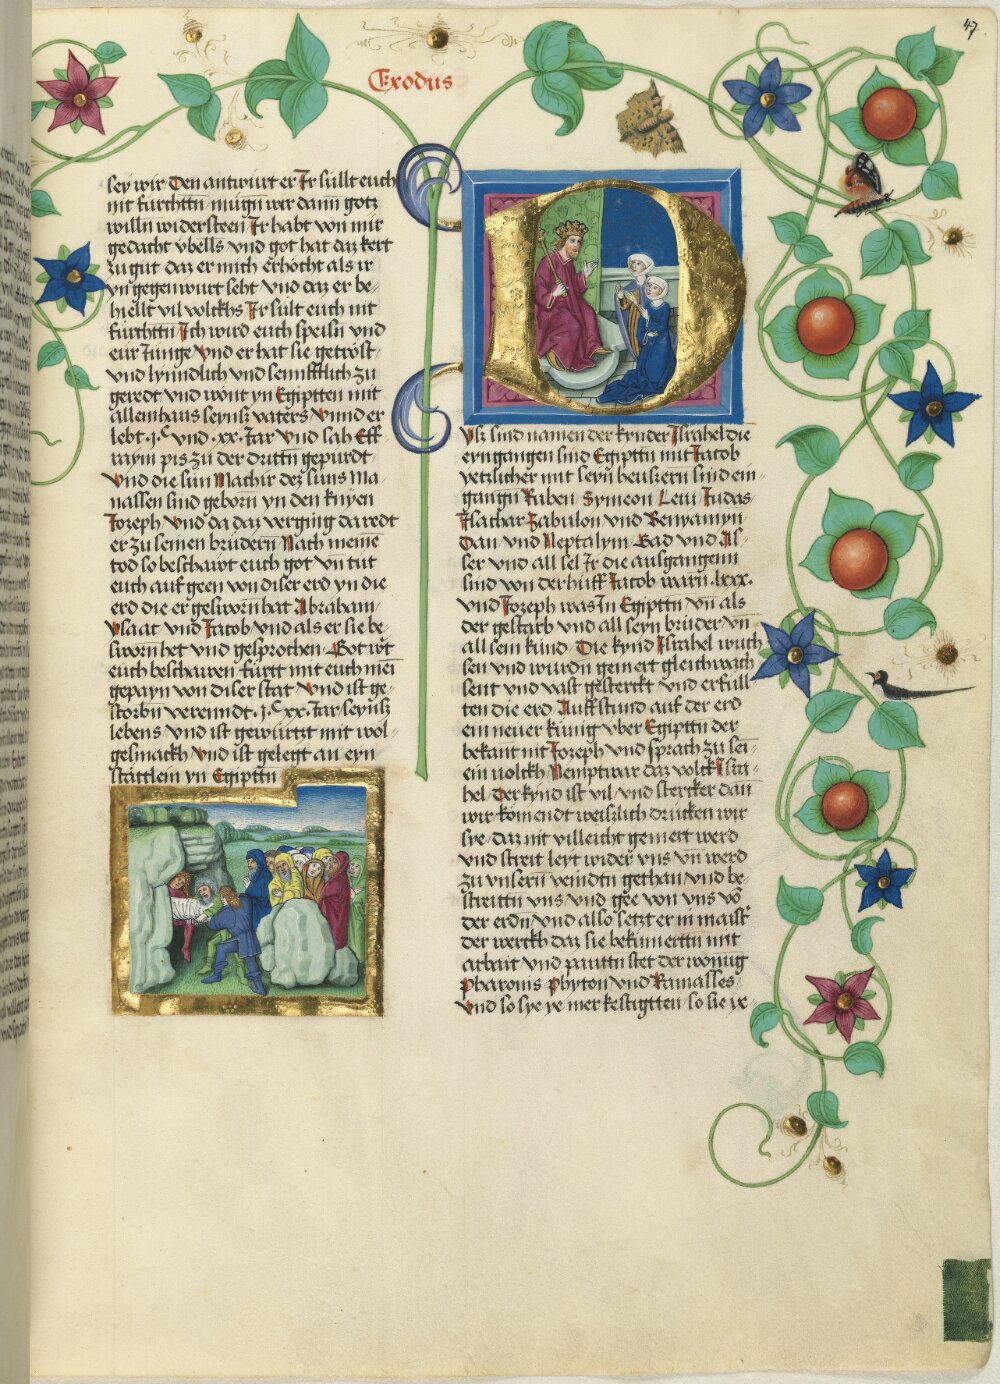 47
Exodus
sey wir Den antwurt er Ir süllt euch
nit fürchttn mugn wer dann gotz
willn widersteen Ir habt von mir
gedacht vbells vnd got hat daz kert
zu gut daz er mich erhöcht als ir
yn gegenwurt seht vnd daz er be-
hiellt vil volckhs Ir sült euch nit
fürchttn Ich wird euch speisn vnd
eur Junge Vnd er hat sie getröst
vnd lynndlich vnd sennfftlich zu
geredt vnd wont yn Egiptten mit
allem haus seynsz vaters Vnnd er
lebt .j.c vnd .xx. Jar Vnd sah Eff-
raym pis zu der drittn gepurdt
Vnd die sun Machir dez suns Ma-
nassen sind geborn yn den knyen
Joseph Vnd da daz verging da redt
er zu seinen brüdern Nach meine
tod so beschawt euch got vn tut
euch auf geen von diser erd yn die
erd die er gesworn hat Abraham
Ysaac vnd Jacob vnd als er sie be-
sworn het vnd gesprochen Got wt
euch beschawen fürt mit euch mei
gepayn von diser stat Vnd ist ge-
storbn verenndt .j.c xx. Jar seynsz
lebens vnd ist gewürtzt mit wol-
gesmackh Vnd ist gelegt an eyn
stättlein yn Egipttn
D
Ysz sind namen der kynder Israhel die
eyngangen sind Egipttn mit Jacob
yetzlicher mit seyn heusern sind ein
gangn Ruben Symeon Leui Judas
Isachar Zabulon vnd Benyamyn
Dan vnd Neptalym Gad vnd As-
ser vnd all sel Jr die ausgangenn
sind von der hüff Jacob warn .lxx.
vnd Joseph was In Egipttn vn als
der gestarb vnd all seyn brüder vn
all sein kund Die kynd Israhel wuch
sen vnd wurdn gemert gleich wach
sent vnd vast gesterckt vnd erfüll
ten die erd Auff stund auf der erd
ein neuer künig vber Egipttn der
bekant nit Joseph vnd sprach zu sei-
ein volckh Nempt war daz volck Isra-
hel der kynd ist vil vnd stercker dan
wir komendt weiszlich drücken wir
sye daz nit villeicht gemert werd
vnd streit leyt wider vns vn werd
zu vnsern veindtn gethan vnd be-
streittn vns vnd gee von vns vo
der erdn vnd also setzt er in maist
der werckh daz sie bekümerttn mit
arbait vnd pauttn stet der wonüg
Pharonis Phyton vnd Ramasses
Vnd so sye ye mer kestigtten so sie ye